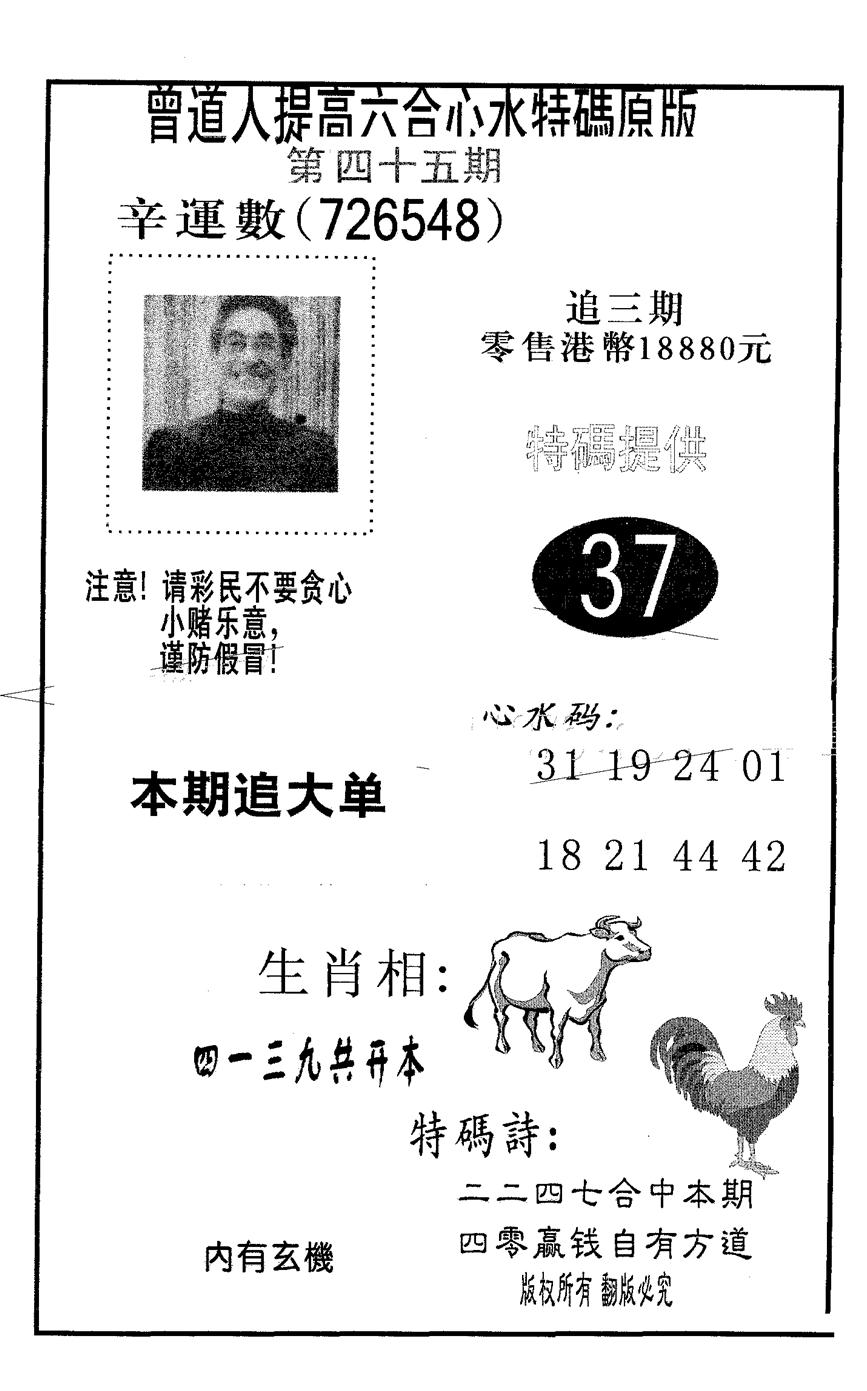 曾道人提高六合心水特碼原版
第四十五期
辛運數(726548)
追三期
零售港幣18880元
特碼提供
37
注意! 请彩民不要贪心
小赌乐意,
谨防假冒!
心水码:
31 19 24 01
本期追大单
18 21 44 42
生肖相:
四一三九共开本
特碼詩:
二二四七合中本期
四零赢钱自有方道
内有玄機
版权所有 翻版必究